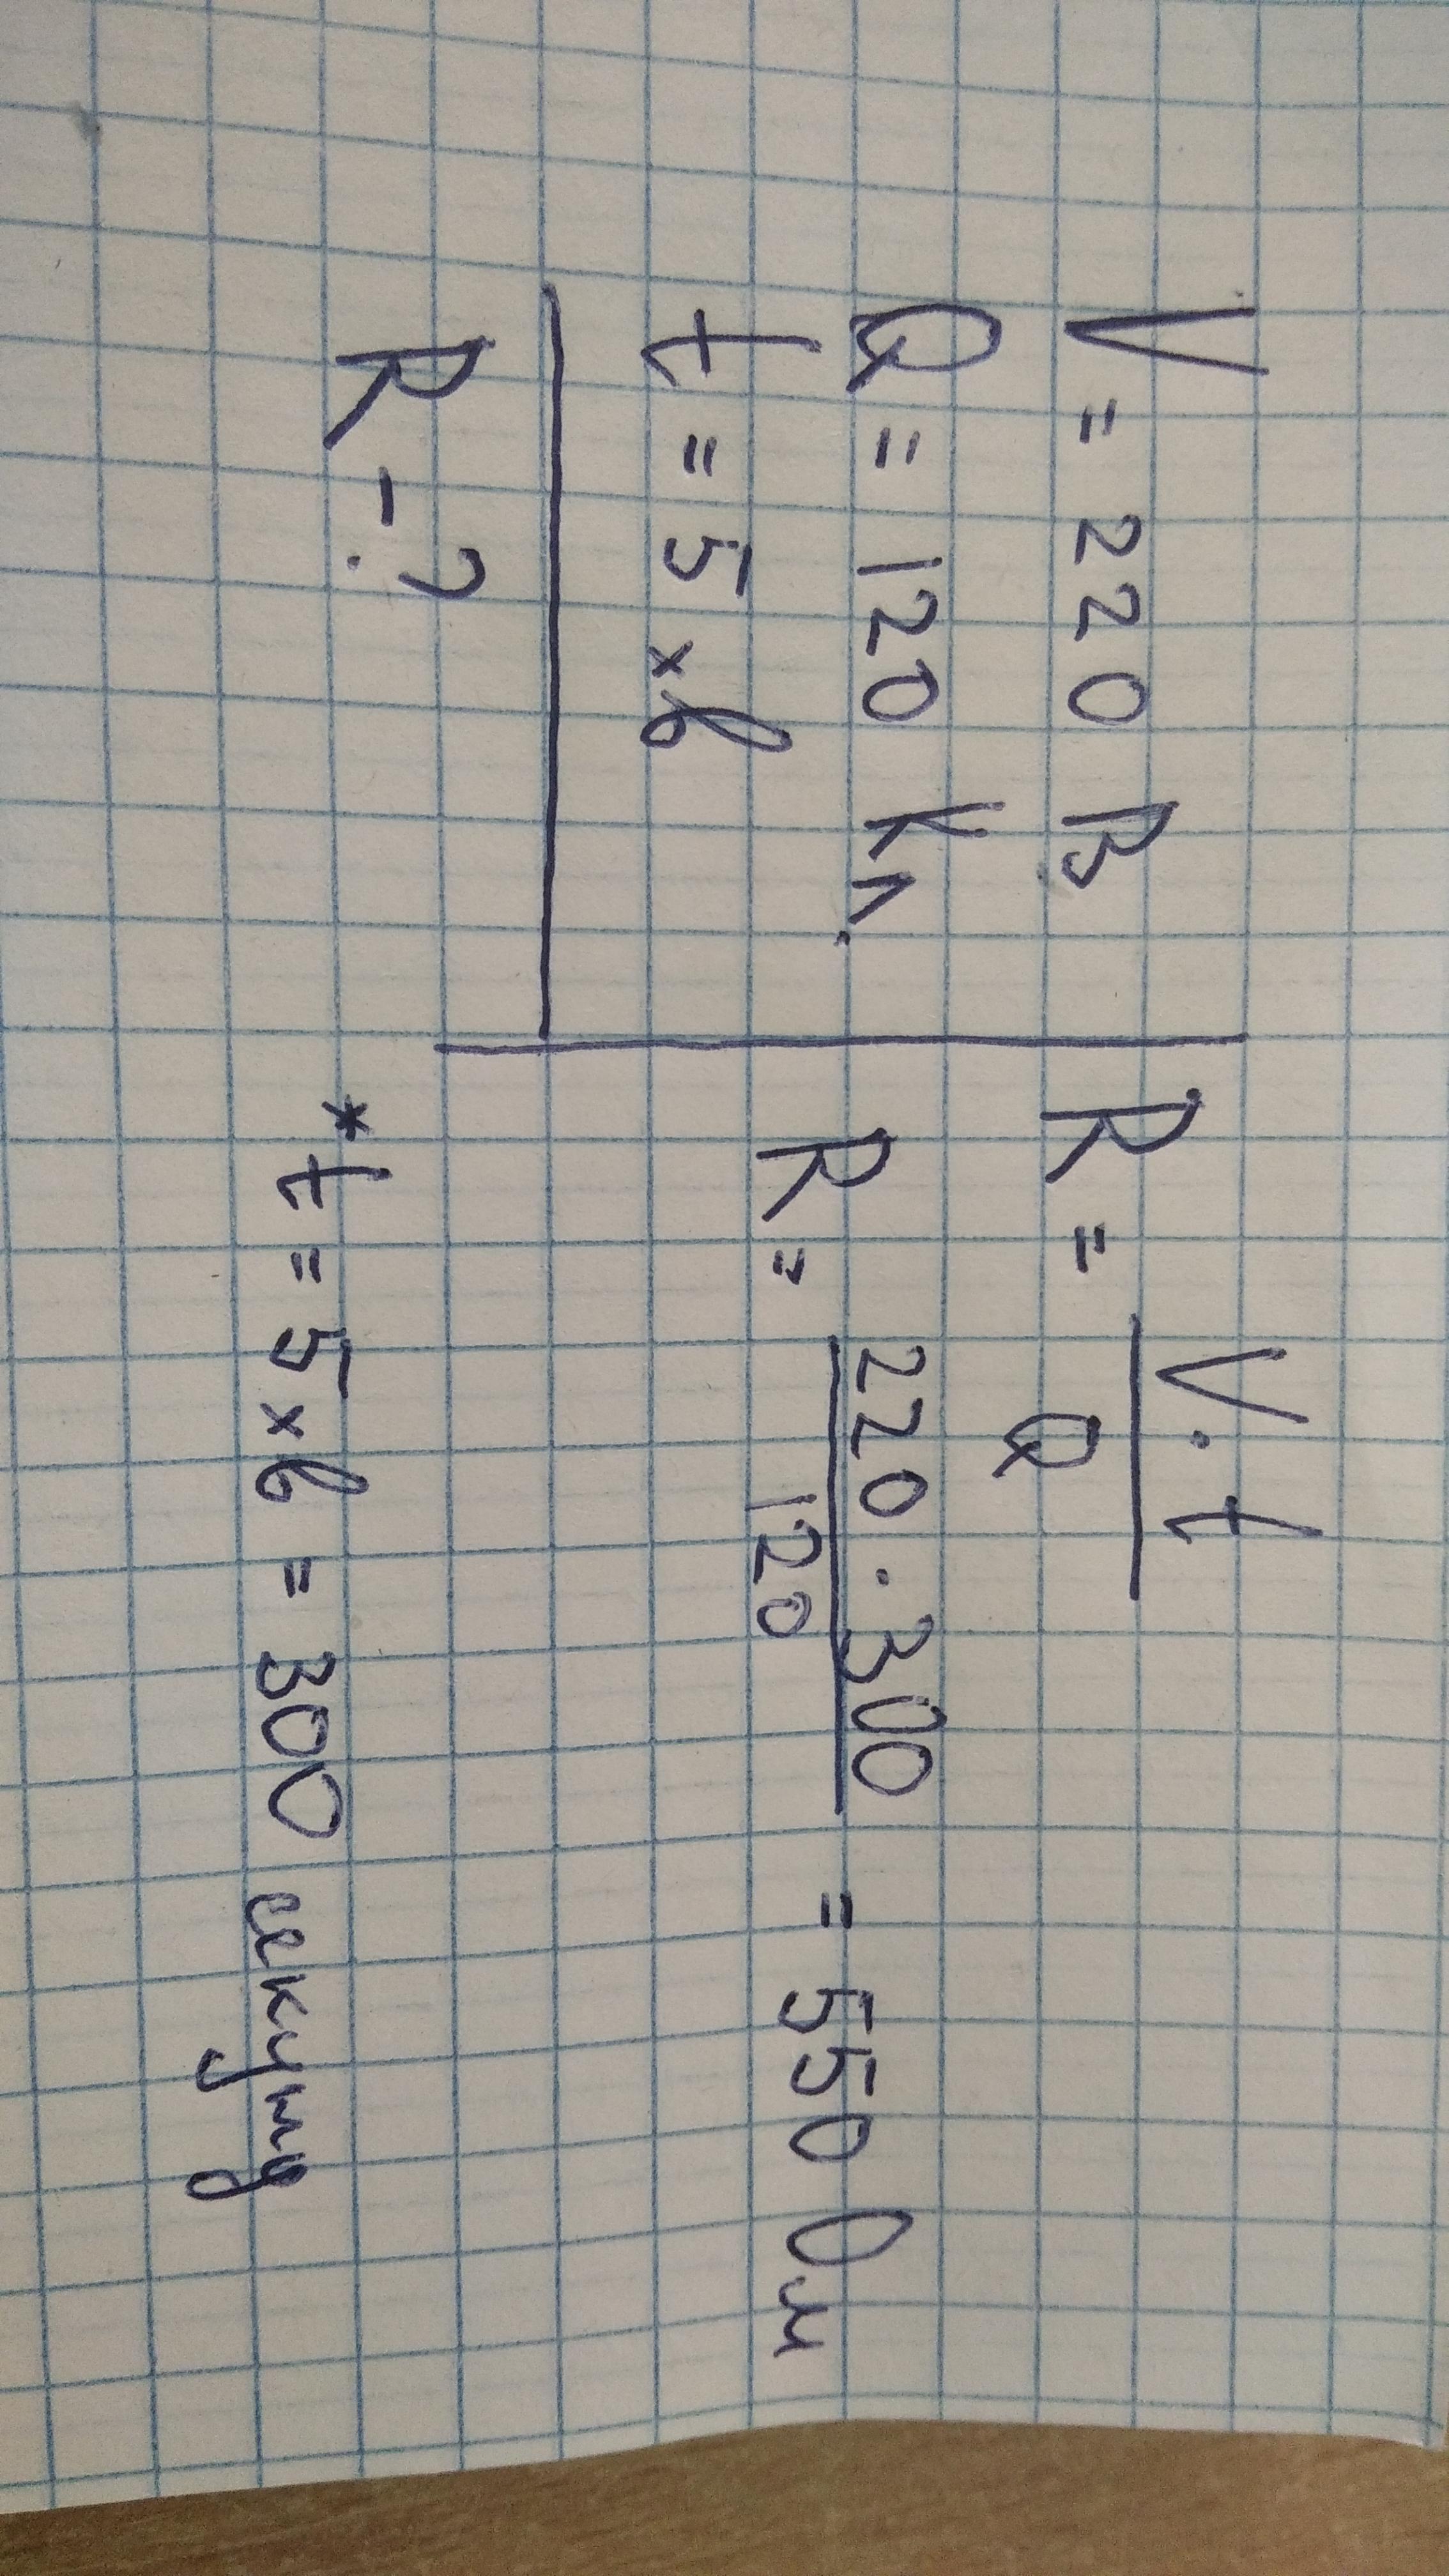 V = 220 В
Q = 120 Кл.
t = 5 хв
R - ?
R = V · t / Q
R = 220 · 300 / 120 = 550 Ом
* t = 5 хв = 300 секунд